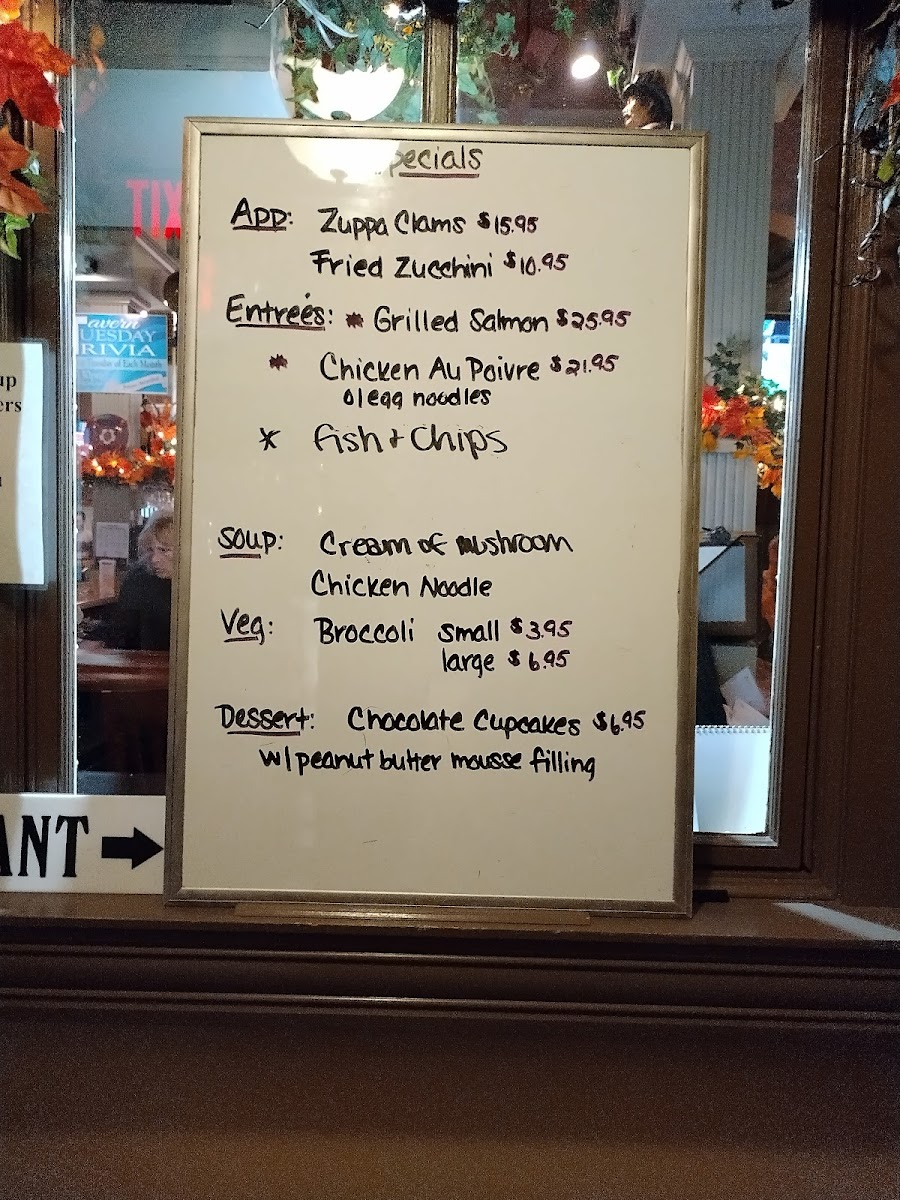 pecials
App: Zuppa Clams $15.95
Fried Zucchini $10.95
Entreés: * Grilled Salmon $25.95
* Chicken Au Poivre $21.95
o/egg noodles
* Fish + Chips
Soup: Cream of Mushroom
Chicken Noodle
Veg: Broccoli small $3.95
large $6.95
Dessert: Chocolate Cupcakes $6.95
w/peanut butter mousse filling
TIX
avern
UESDAY
RIVIA
of Each Month
up
ers
ANT →